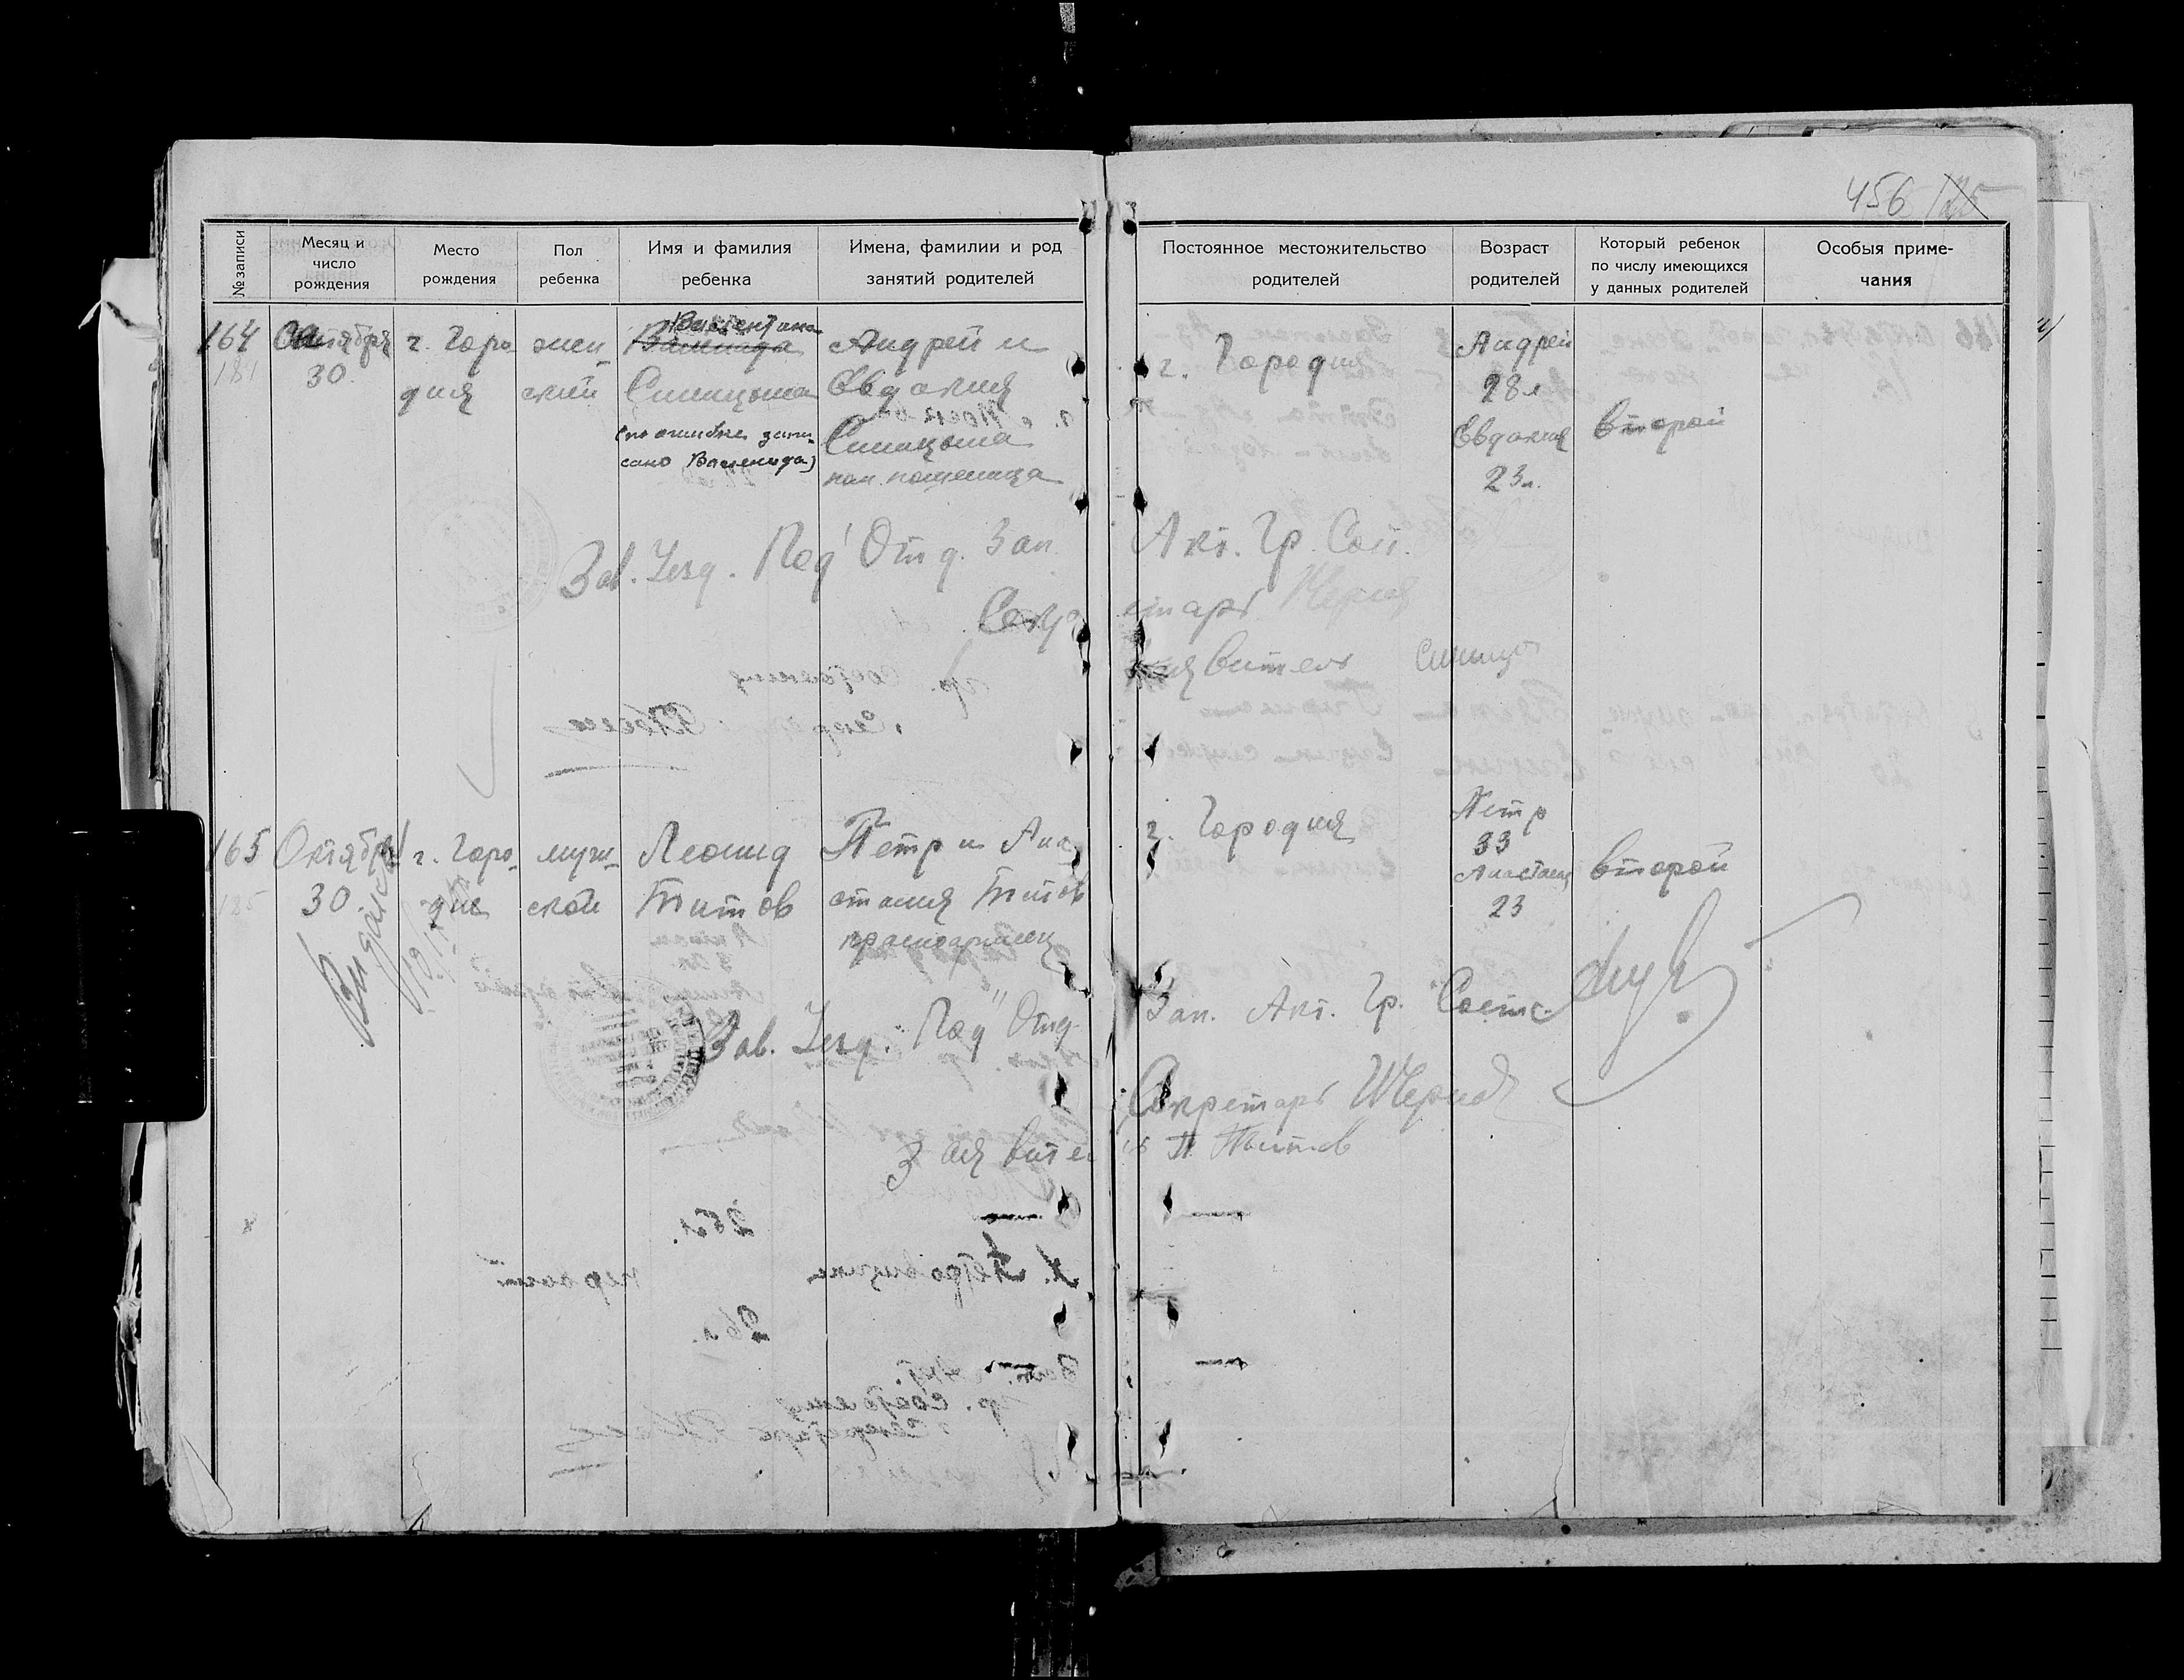 456 125
№ записи
Месяц и
число
рождения
Место
рождения
Пол
ребенка
Имя и фамилия
ребенка
Имена, фамилии и род
занятий родителей
Постоянное местожительство
родителей
Возраст
родителей
Который ребенок
по числу имеющихся
у данных родителей
Особыя приме-
чания
164
181
Октября
30.
г. Горо
дня
жен-
ский
Валентина
Синицына
(по ошибке запи-
сано
Андрей и
Евдокия
Синицына
г. Городня
Андрей
28 л
Евдокия
23 л.
второй
Зав. Уезд. Под'Отд. Зап. Акт. Гр. Сост.
Секретарь
Заявитель
165
185
Октября
30.
г. Горо-
дне
муж-
ской
Леонид
Титов
Петр и Ана-
стасия Титов
красноармеец
г. Городня
Петр
33
Анастасия
23
второй
Зав. Уезд. Под"Отд. Зап. Акт. Гр. Сост.
Секретарь
Заявитель П. Титов